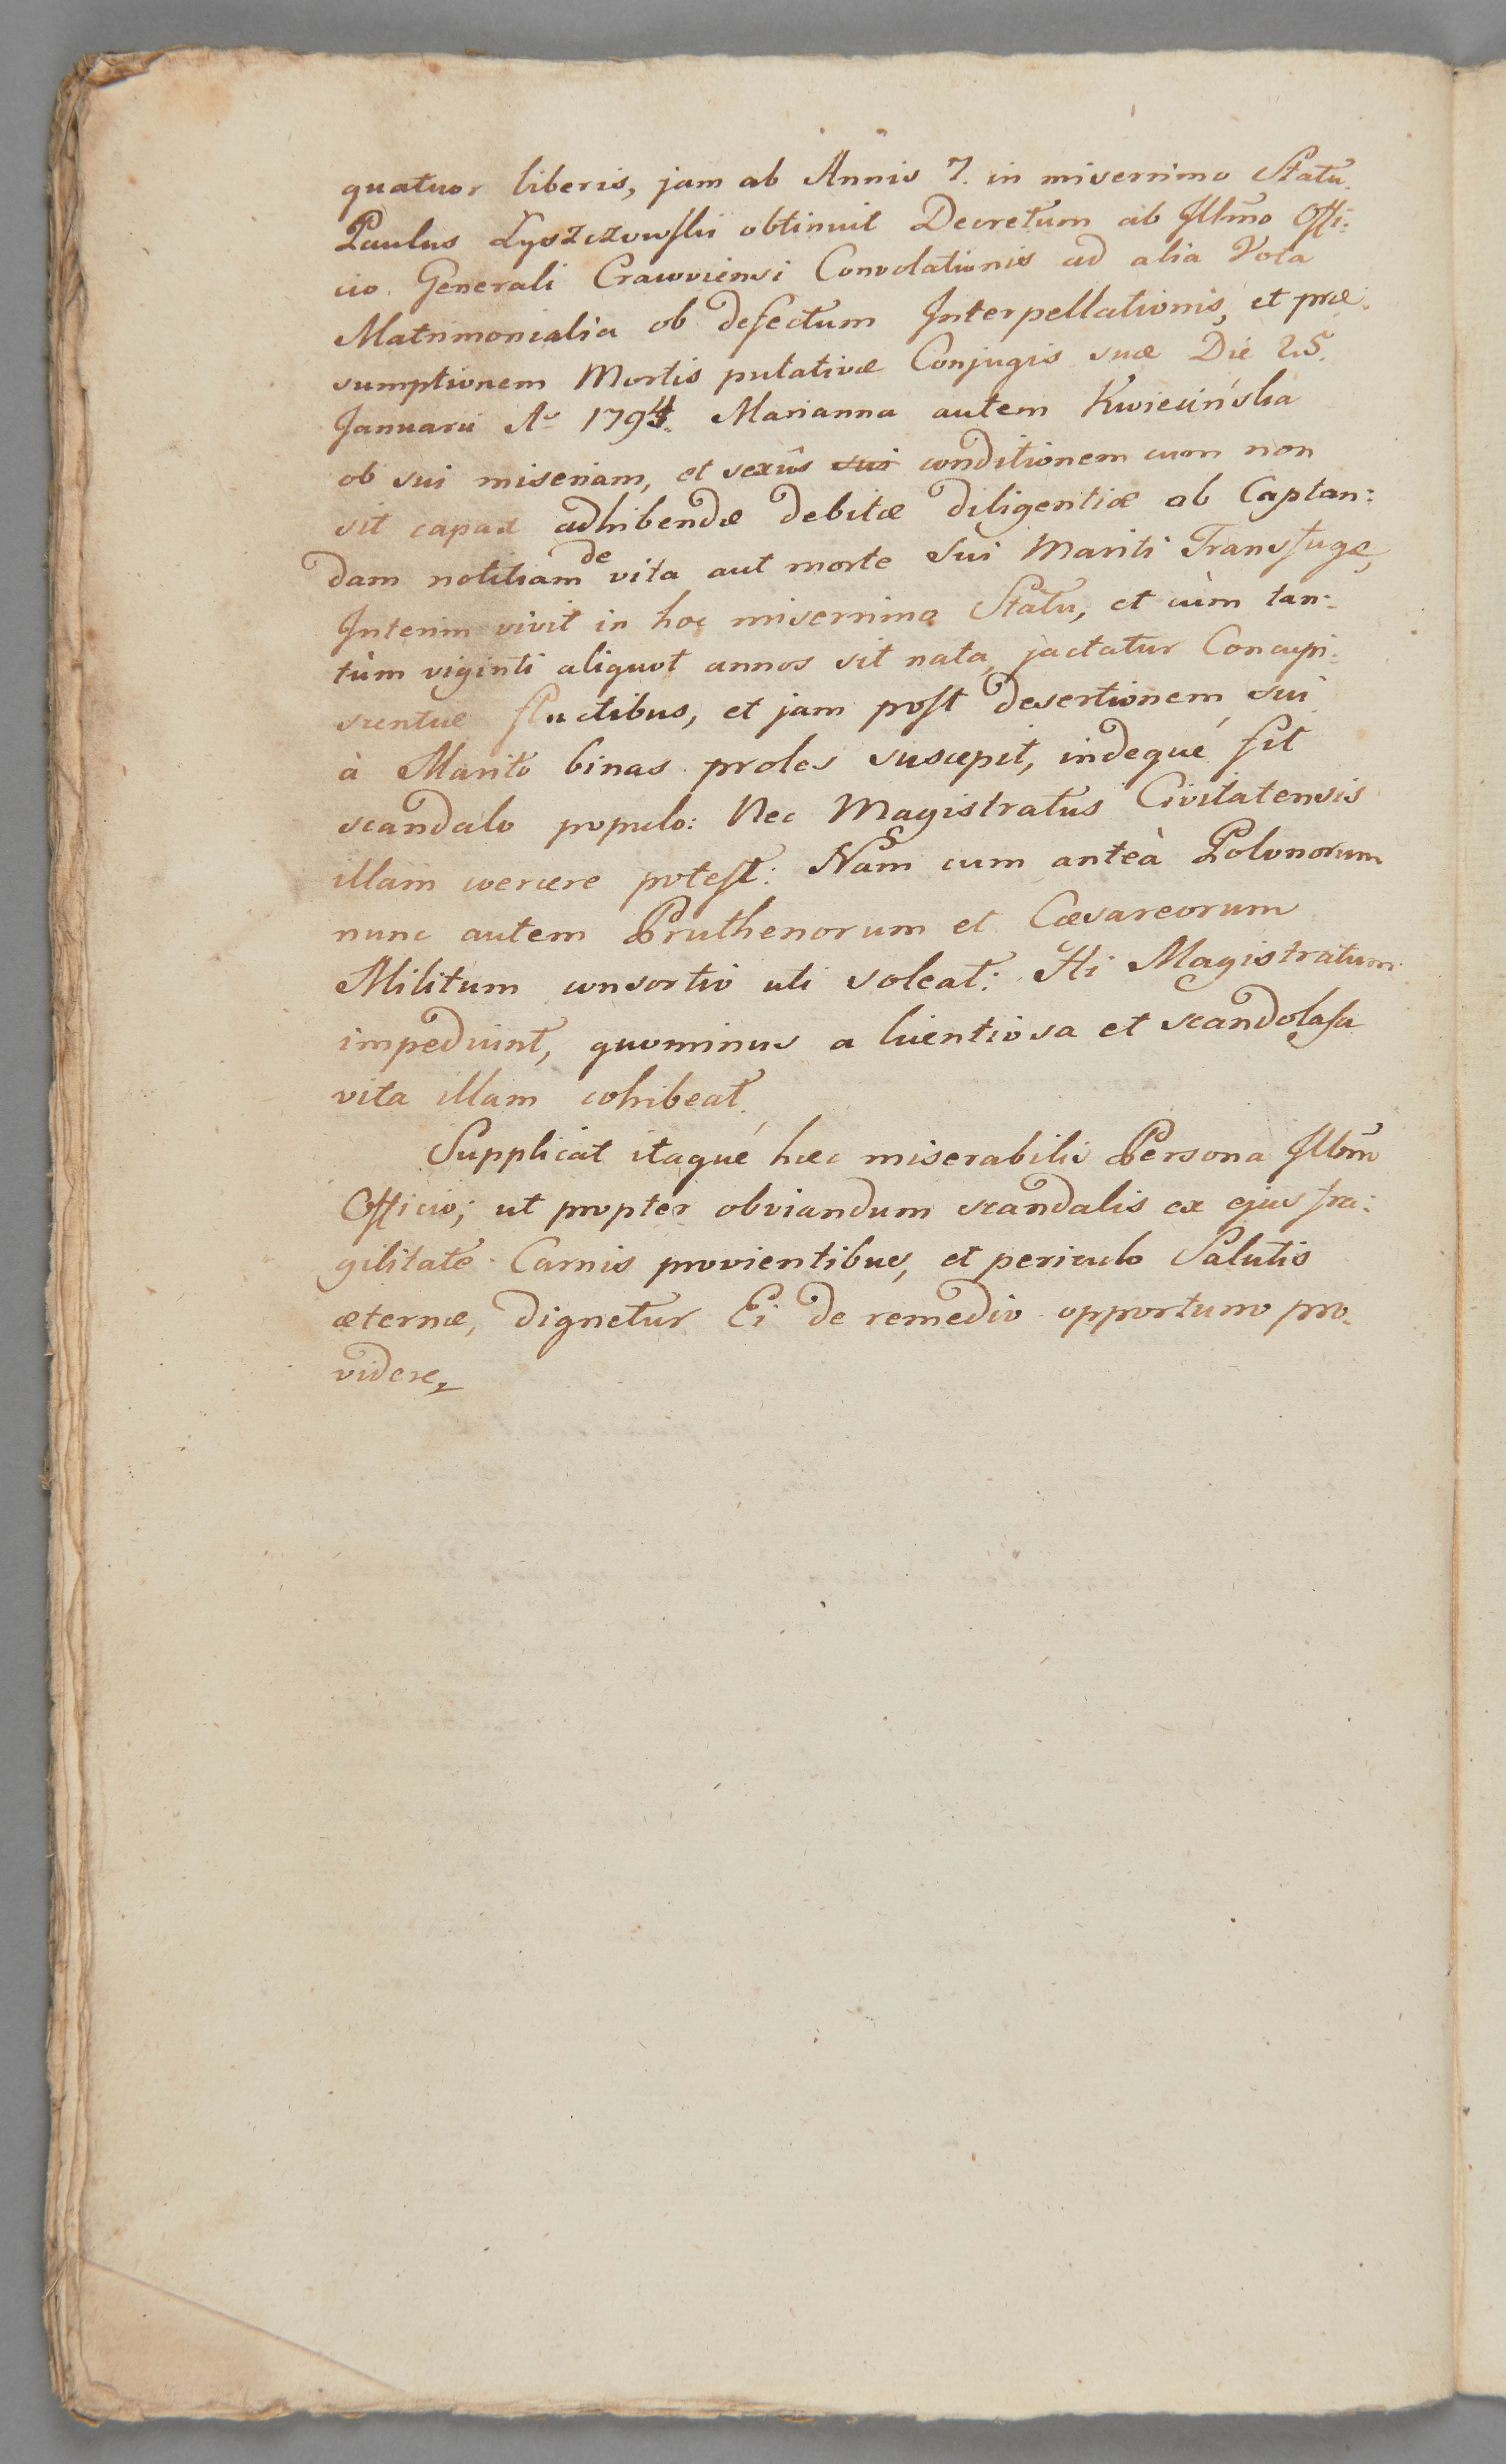 quatuor liberis, jam ab Annis 7. in miserrimo Statu.
Paulus Łyszczowski obtinuit Decretum ab Illmo Offi:
cio Generali Cracoviensi Convolationis ad alia Vota
Matrimonialia ob defectum Interpellationis, et præ:
sumptionem Mortis putativæ Conjugis suæ Die 25.
Januarii Ao 1794. Marianna autem Kwiecińska
ob sui miseriam, et sexûs sui conditionem cum non
sit capax adhibendæ debitæ diligentiæ ab Captan:
dam notitiam de vita aut morte Sui Mariti Transfugæ,
Interim vivit in hoc miserrimo Statu, et cùm tan:
tùm viginti aliquot annos sit nata, jactatur Concupi:
scentiæ fluctibus, et jam post desertionem sui
à Marito binas proles suscepit, indequé fit
scandalo populo: Nec Magistratus Civitatensis
illam coercere potest: Nam cum anteà Polonorum
nunc autem Pruthenorum et Cæsareorum
Militum consortio uti soleat: Hi Magistratum
impediunt, quominus a licentiosa et scandolosa
vita illam cohibeat.
Supplicat itaqué hæc miserabilis Persona Illmo
Officio; ut propter obviandum scandalis ex ejus fra:
gilitate Carnis provientibus, et periculo Salutis
æternæ, dignetur Ei de remedio opportuno pro:
videre,